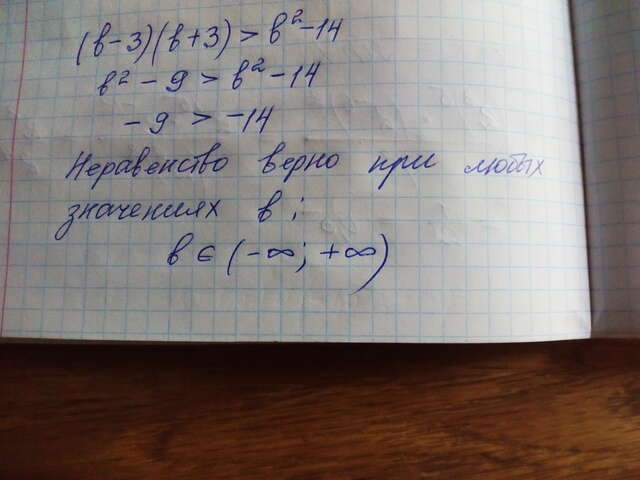 (в-3)(в+3) > в²-14
в² - 9 > в² - 14
- 9 > -14
Неравенство верно при любых
значениях в;
в ∈ (-∞; +∞)